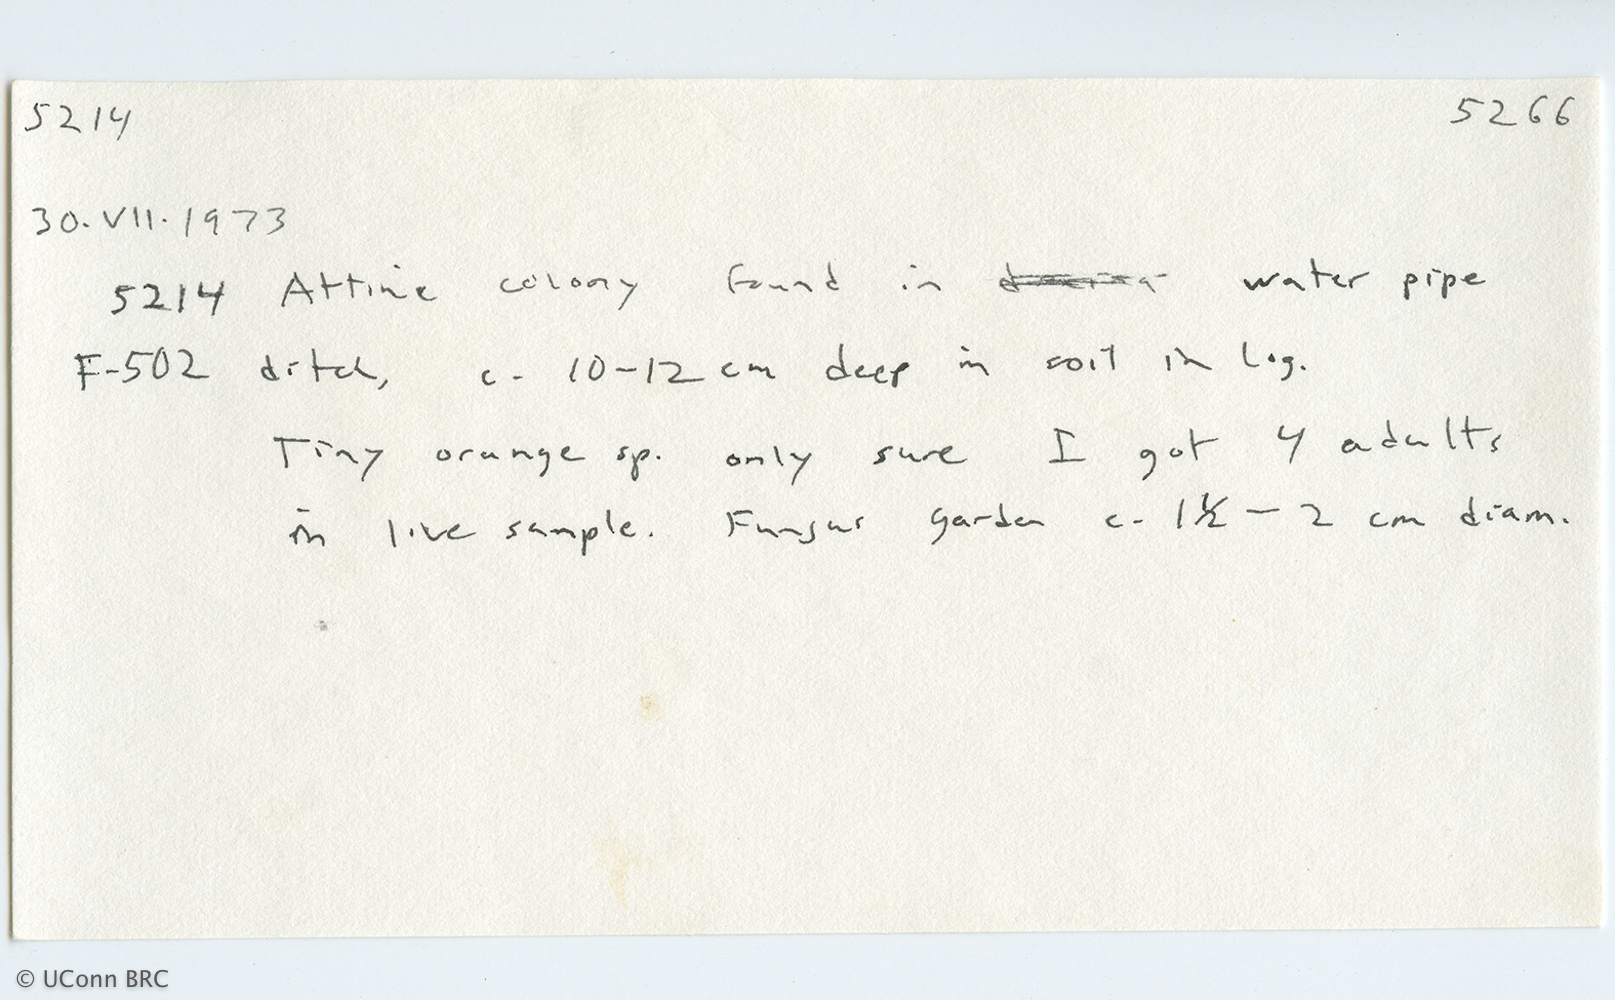 5214 5266
30.VII.1973
5214 Attine colony found in water pipe
F-502 ditch, c. 10-12 cm deep in soil in log.
Tiny orange sp. only sure I got 4 adults
in live sample. Fungus garden c. 1½ - 2 cm diam.
© UConn BRC